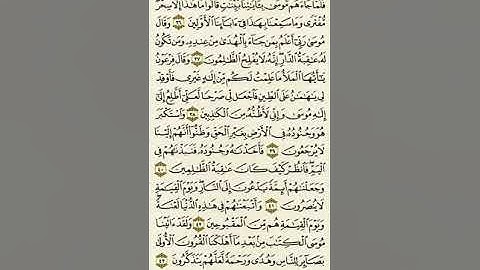 فَلَمَّا جَاءَهُم مُّوسَىٰ بِآيَاتِنَا بَيِّنَاتٍ قَالُوا مَا هَٰذَا إِلَّا سِحْرٌ
مُّفْتَرًى وَمَا سَمِعْنَا بِهَٰذَا فِي آبَائِنَا الْأَوَّلِينَ ٣٦ وَقَالَ
مُوسَىٰ رَبِّي أَعْلَمُ بِمَن جَاءَ بِالْهُدَىٰ مِنْ عِندِهِ وَمَن تَكُونُ
لَهُ عَاقِبَةُ الدَّارِ إِنَّهُ لَا يُفْلِحُ الظَّالِمُونَ ٣٧ وَقَالَ فِرْعَوْنُ
يَا أَيُّهَا الْمَلَأُ مَا عَلِمْتُ لَكُم مِّنْ إِلَٰهٍ غَيْرِي فَأَوْقِدْ
لِي يَا هَامَانُ عَلَى الطِّينِ فَاجْعَل لِّي صَرْحًا لَّعَلِّي أَطَّلِعُ إِلَىٰ
إِلَٰهِ مُوسَىٰ وَإِنِّي لَأَظُنُّهُ مِنَ الْكَاذِبِينَ ٣٨ وَاسْتَكْبَرَ
هُوَ وَجُنُودُهُ فِي الْأَرْضِ بِغَيْرِ الْحَقِّ وَظَنُّوا أَنَّهُمْ إِلَيْنَا
لَا يُرْجَعُونَ ٣٩ فَأَخَذْنَاهُ وَجُنُودَهُ فَنَبَذْنَاهُمْ فِي
الْيَمِّ فَانظُرْ كَيْفَ كَانَ عَاقِبَةُ الظَّالِمِينَ ٤٠
وَجَعَلْنَاهُمْ أَئِمَّةً يَدْعُونَ إِلَى النَّارِ وَيَوْمَ الْقِيَامَةِ
لَا يُنصَرُونَ ٤١ وَأَتْبَعْنَاهُمْ فِي هَٰذِهِ الدُّنْيَا لَعْنَةً
وَيَوْمَ الْقِيَامَةِ هُم مِّنَ الْمَقْبُوحِينَ ٤٢ وَلَقَدْ آتَيْنَا
مُوسَى الْكِتَابَ مِن بَعْدِ مَا أَهْلَكْنَا الْقُرُونَ الْأُولَىٰ
بَصَائِرَ لِلنَّاسِ وَهُدًى وَرَحْمَةً لَّعَلَّهُمْ يَتَذَكَّرُونَ ٤٣